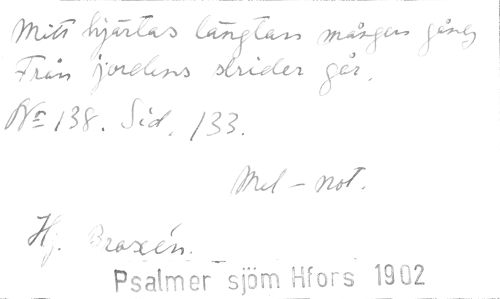 Mitt hjärtas längtan mången gång
Från jordens strider går.
No 138. Sid. 133.
Mel-not.
Hj. Braxén.
Psalmer sjöm Hfors 1902